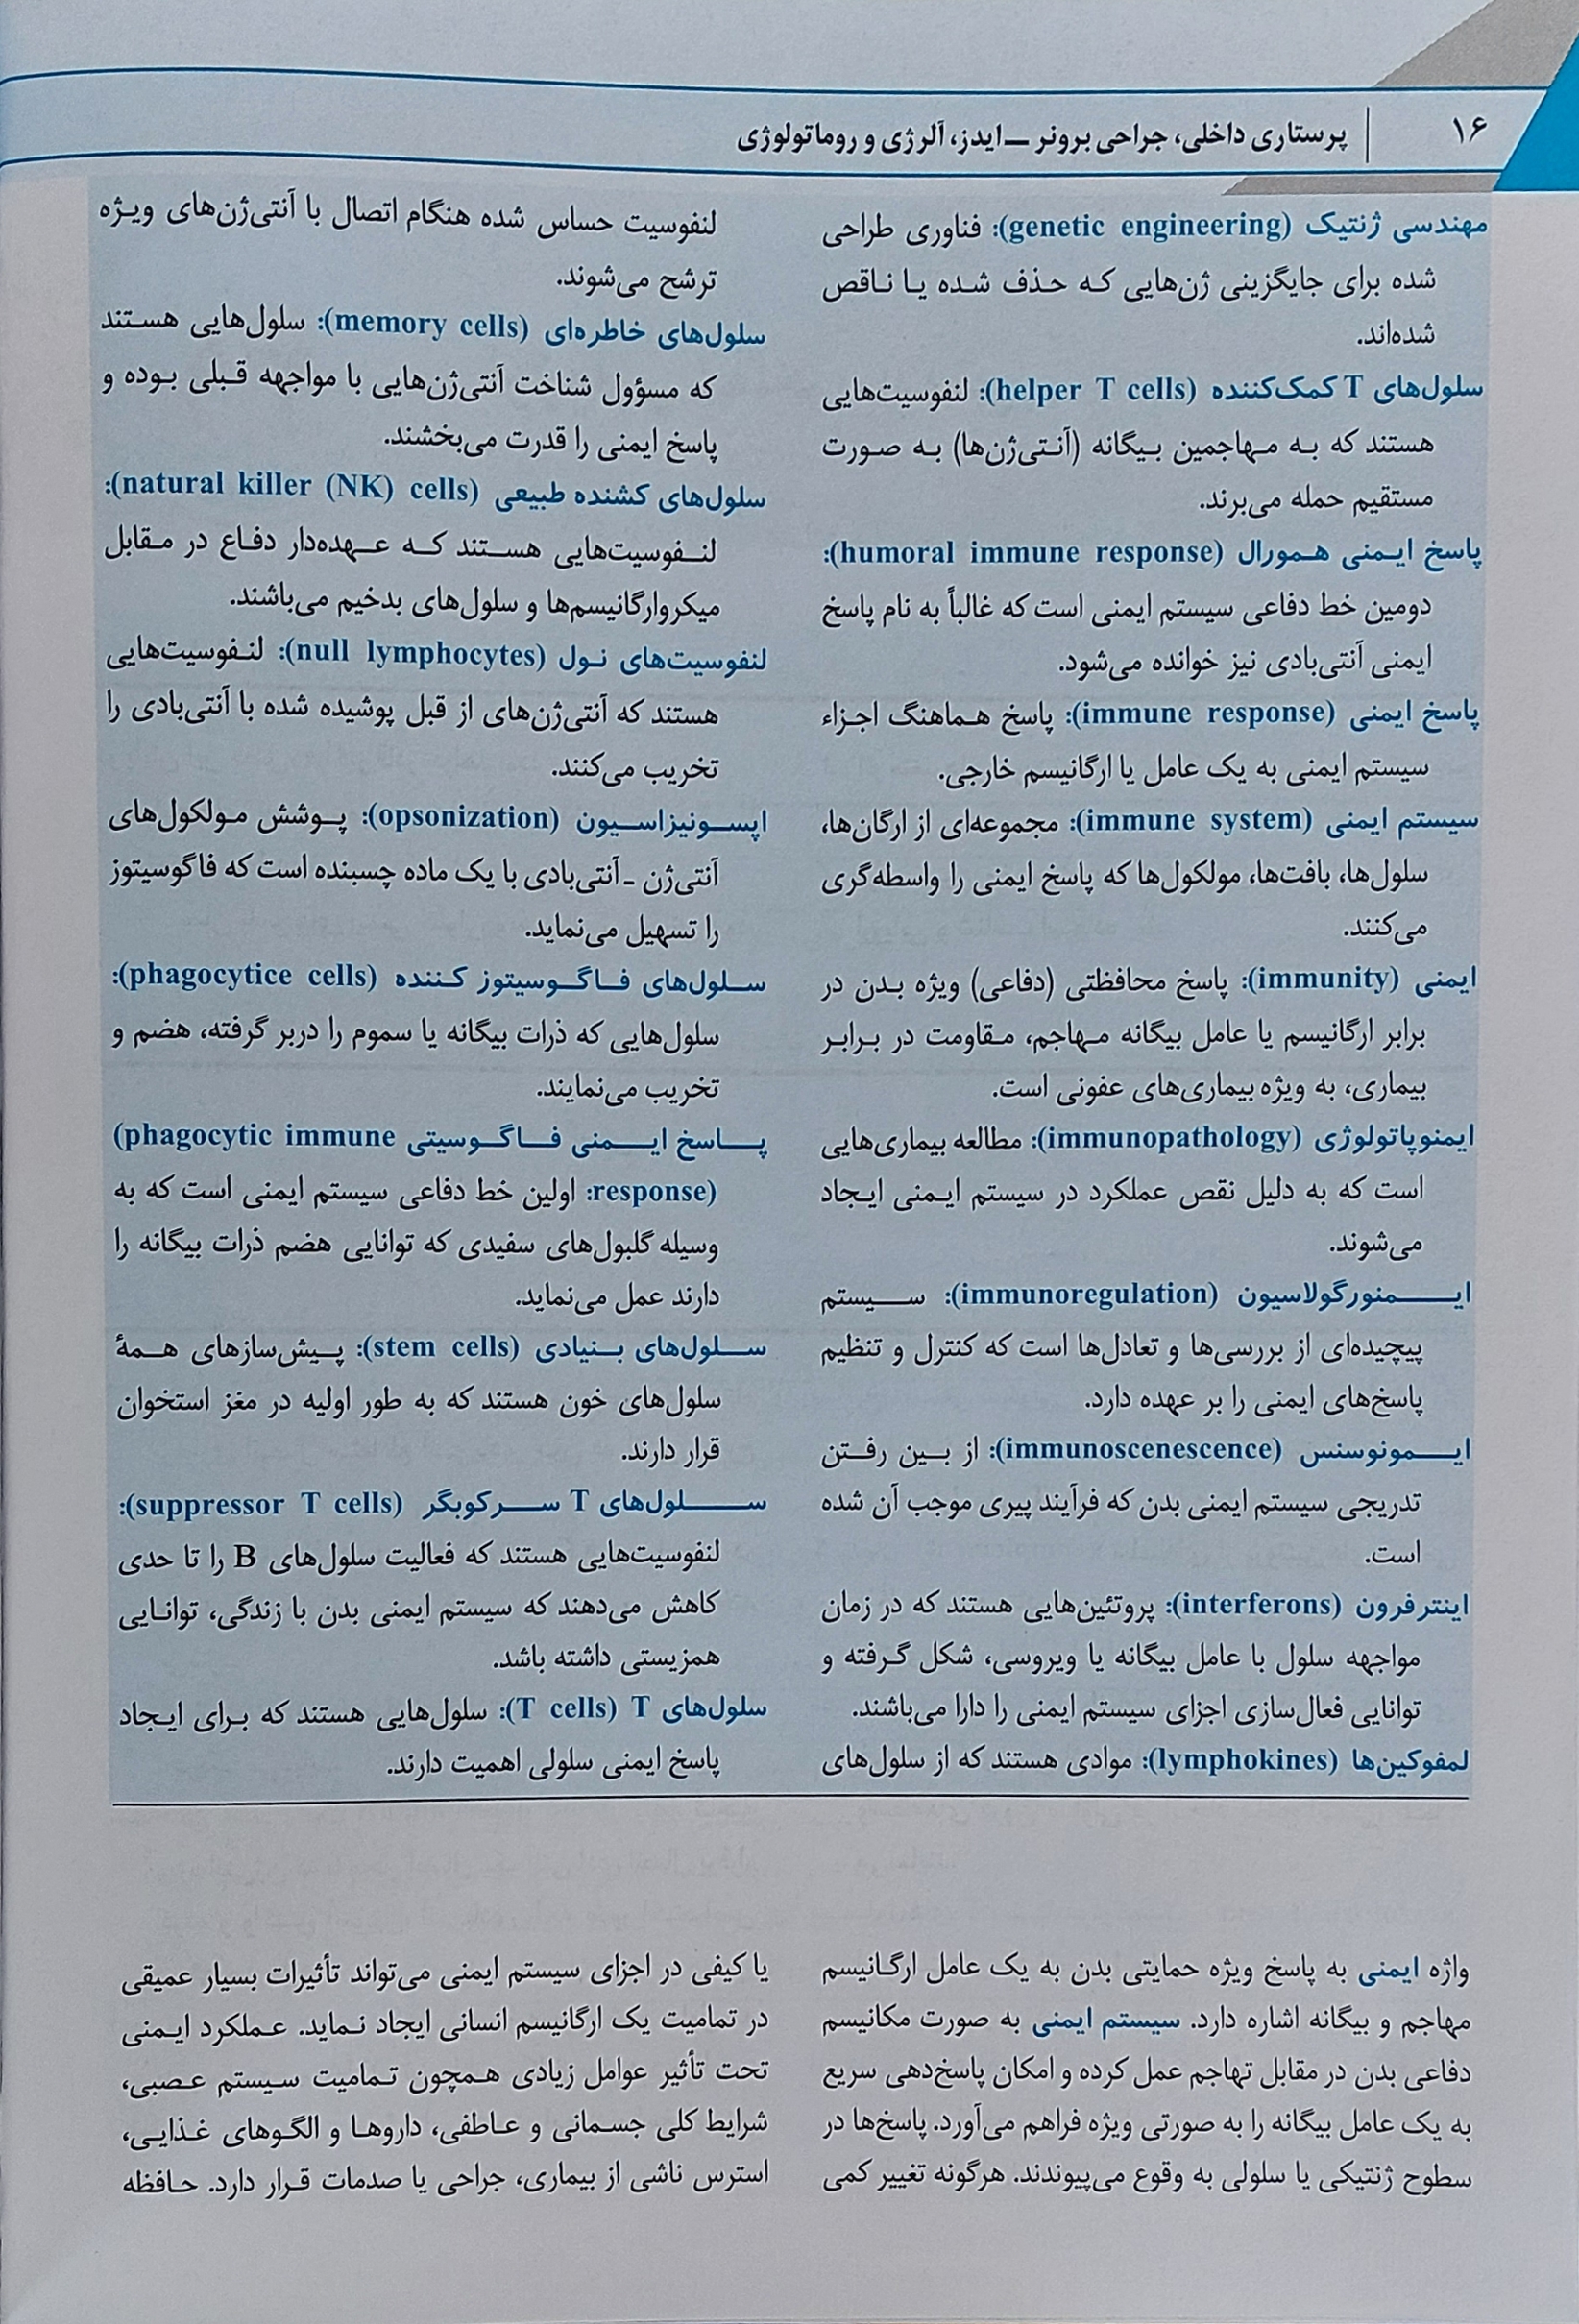 ۱۶
پرستاری داخلی، جراحی برونر ـ ایدز، آلرژی و روماتولوژی
مهندسی ژنتیک (genetic engineering): فناوری طراحی
شده برای جایگزینی ژن‌هایی که حذف شده یا ناقص
شده‌اند.
سلول‌های T کمک‌کننده (helper T cells): لنفوسیت‌هایی
هستند که به مهاجمین بیگانه (آنتی‌ژن‌ها) به صورت
مستقیم حمله می‌برند.
پاسخ ایمنی همورال (humoral immune response):
دومین خط دفاعی سیستم ایمنی است که غالباً به نام پاسخ
ایمنی آنتی‌بادی نیز خوانده می‌شود.
پاسخ ایمنی (immune response): پاسخ هماهنگ اجزاء
سیستم ایمنی به یک عامل یا ارگانیسم خارجی.
سیستم ایمنی (immune system): مجموعه‌ای از ارگان‌ها،
سلول‌ها، بافت‌ها، مولکول‌ها که پاسخ ایمنی را واسطه‌گری
می‌کنند.
ایمنی (immunity): پاسخ محافظتی (دفاعی) ویژه بدن در
برابر ارگانیسم یا عامل بیگانه مهاجم، مقاومت در برابر
بیماری، به ویژه بیماری‌های عفونی است.
ایمنوپاتولوژی (immunopathology): مطالعه بیماری‌هایی
است که به دلیل نقص عملکرد در سیستم ایمنی ایجاد
می‌شوند.
ایمنورگولاسیون (immunoregulation): سیستم
پیچیده‌ای از بررسی‌ها و تعادل‌ها است که کنترل و تنظیم
پاسخ‌های ایمنی را بر عهده دارد.
ایمونوسنس (immunoscenescence): از بین رفتن
تدریجی سیستم ایمنی بدن که فرآیند پیری موجب آن شده
است.
اینترفرون (interferons): پروتئین‌هایی هستند که در زمان
مواجهه سلول با عامل بیگانه یا ویروسی، شکل گرفته و
توانایی فعال‌سازی اجزای سیستم ایمنی را دارا می‌باشند.
لمفوکین‌ها (lymphokines): موادی هستند که از سلول‌های
لنفوسیت حساس شده هنگام اتصال با آنتی‌ژن‌های ویژه
ترشح می‌شوند.
سلول‌های خاطره‌ای (memory cells): سلول‌هایی هستند
که مسؤول شناخت آنتی‌ژن‌هایی با مواجهه قبلی بوده و
پاسخ ایمنی را قدرت می‌بخشند.
سلول‌های کشنده طبیعی (natural killer (NK) cells):
لنفوسیت‌هایی هستند که عهده‌دار دفاع در مقابل
میکروارگانیسم‌ها و سلول‌های بدخیم می‌باشند.
لنفوسیت‌های نول (null lymphocytes): لنفوسیت‌هایی
هستند که آنتی‌ژن‌های از قبل پوشیده شده با آنتی‌بادی را
تخریب می‌کنند.
اپسونیزاسیون (opsonization): پوشش مولکول‌های
آنتی‌ژن ـ آنتی‌بادی با یک ماده چسبنده است که فاگوسیتوز
را تسهیل می‌نماید.
سلول‌های فاگوسیتوز کننده (phagocytice cells):
سلول‌هایی که ذرات بیگانه یا سموم را دربر گرفته، هضم و
تخریب می‌نمایند.
پاسخ ایمنی فاگوسیتی (phagocytic immune
response): اولین خط دفاعی سیستم ایمنی است که به
وسیله گلبول‌های سفیدی که توانایی هضم ذرات بیگانه را
دارند عمل می‌نماید.
سلول‌های بنیادی (stem cells): پیش‌سازهای همهٔ
سلول‌های خون هستند که به طور اولیه در مغز استخوان
قرار دارند.
سلول‌های T سرکوبگر (suppressor T cells):
لنفوسیت‌هایی هستند که فعالیت سلول‌های B را تا حدی
کاهش می‌دهند که سیستم ایمنی بدن با زندگی، توانایی
همزیستی داشته باشد.
سلول‌های T (T cells): سلول‌هایی هستند که برای ایجاد
پاسخ ایمنی سلولی اهمیت دارند.
واژه ایمنی به پاسخ ویژه حمایتی بدن به یک عامل ارگانیسم
مهاجم و بیگانه اشاره دارد. سیستم ایمنی به صورت مکانیسم
دفاعی بدن در مقابل تهاجم عمل کرده و امکان پاسخ‌دهی سریع
به یک عامل بیگانه را به صورتی ویژه فراهم می‌آورد. پاسخ‌ها در
سطوح ژنتیکی یا سلولی به وقوع می‌پیوندند. هرگونه تغییر کمی
یا کیفی در اجزای سیستم ایمنی می‌تواند تأثیرات بسیار عمیقی
در تمامیت یک ارگانیسم انسانی ایجاد نماید. عملکرد ایمنی
تحت تأثیر عوامل زیادی همچون تمامیت سیستم عصبی،
شرایط کلی جسمانی و عاطفی، داروها و الگوهای غذایی،
استرس ناشی از بیماری، جراحی یا صدمات قرار دارد. حافظه